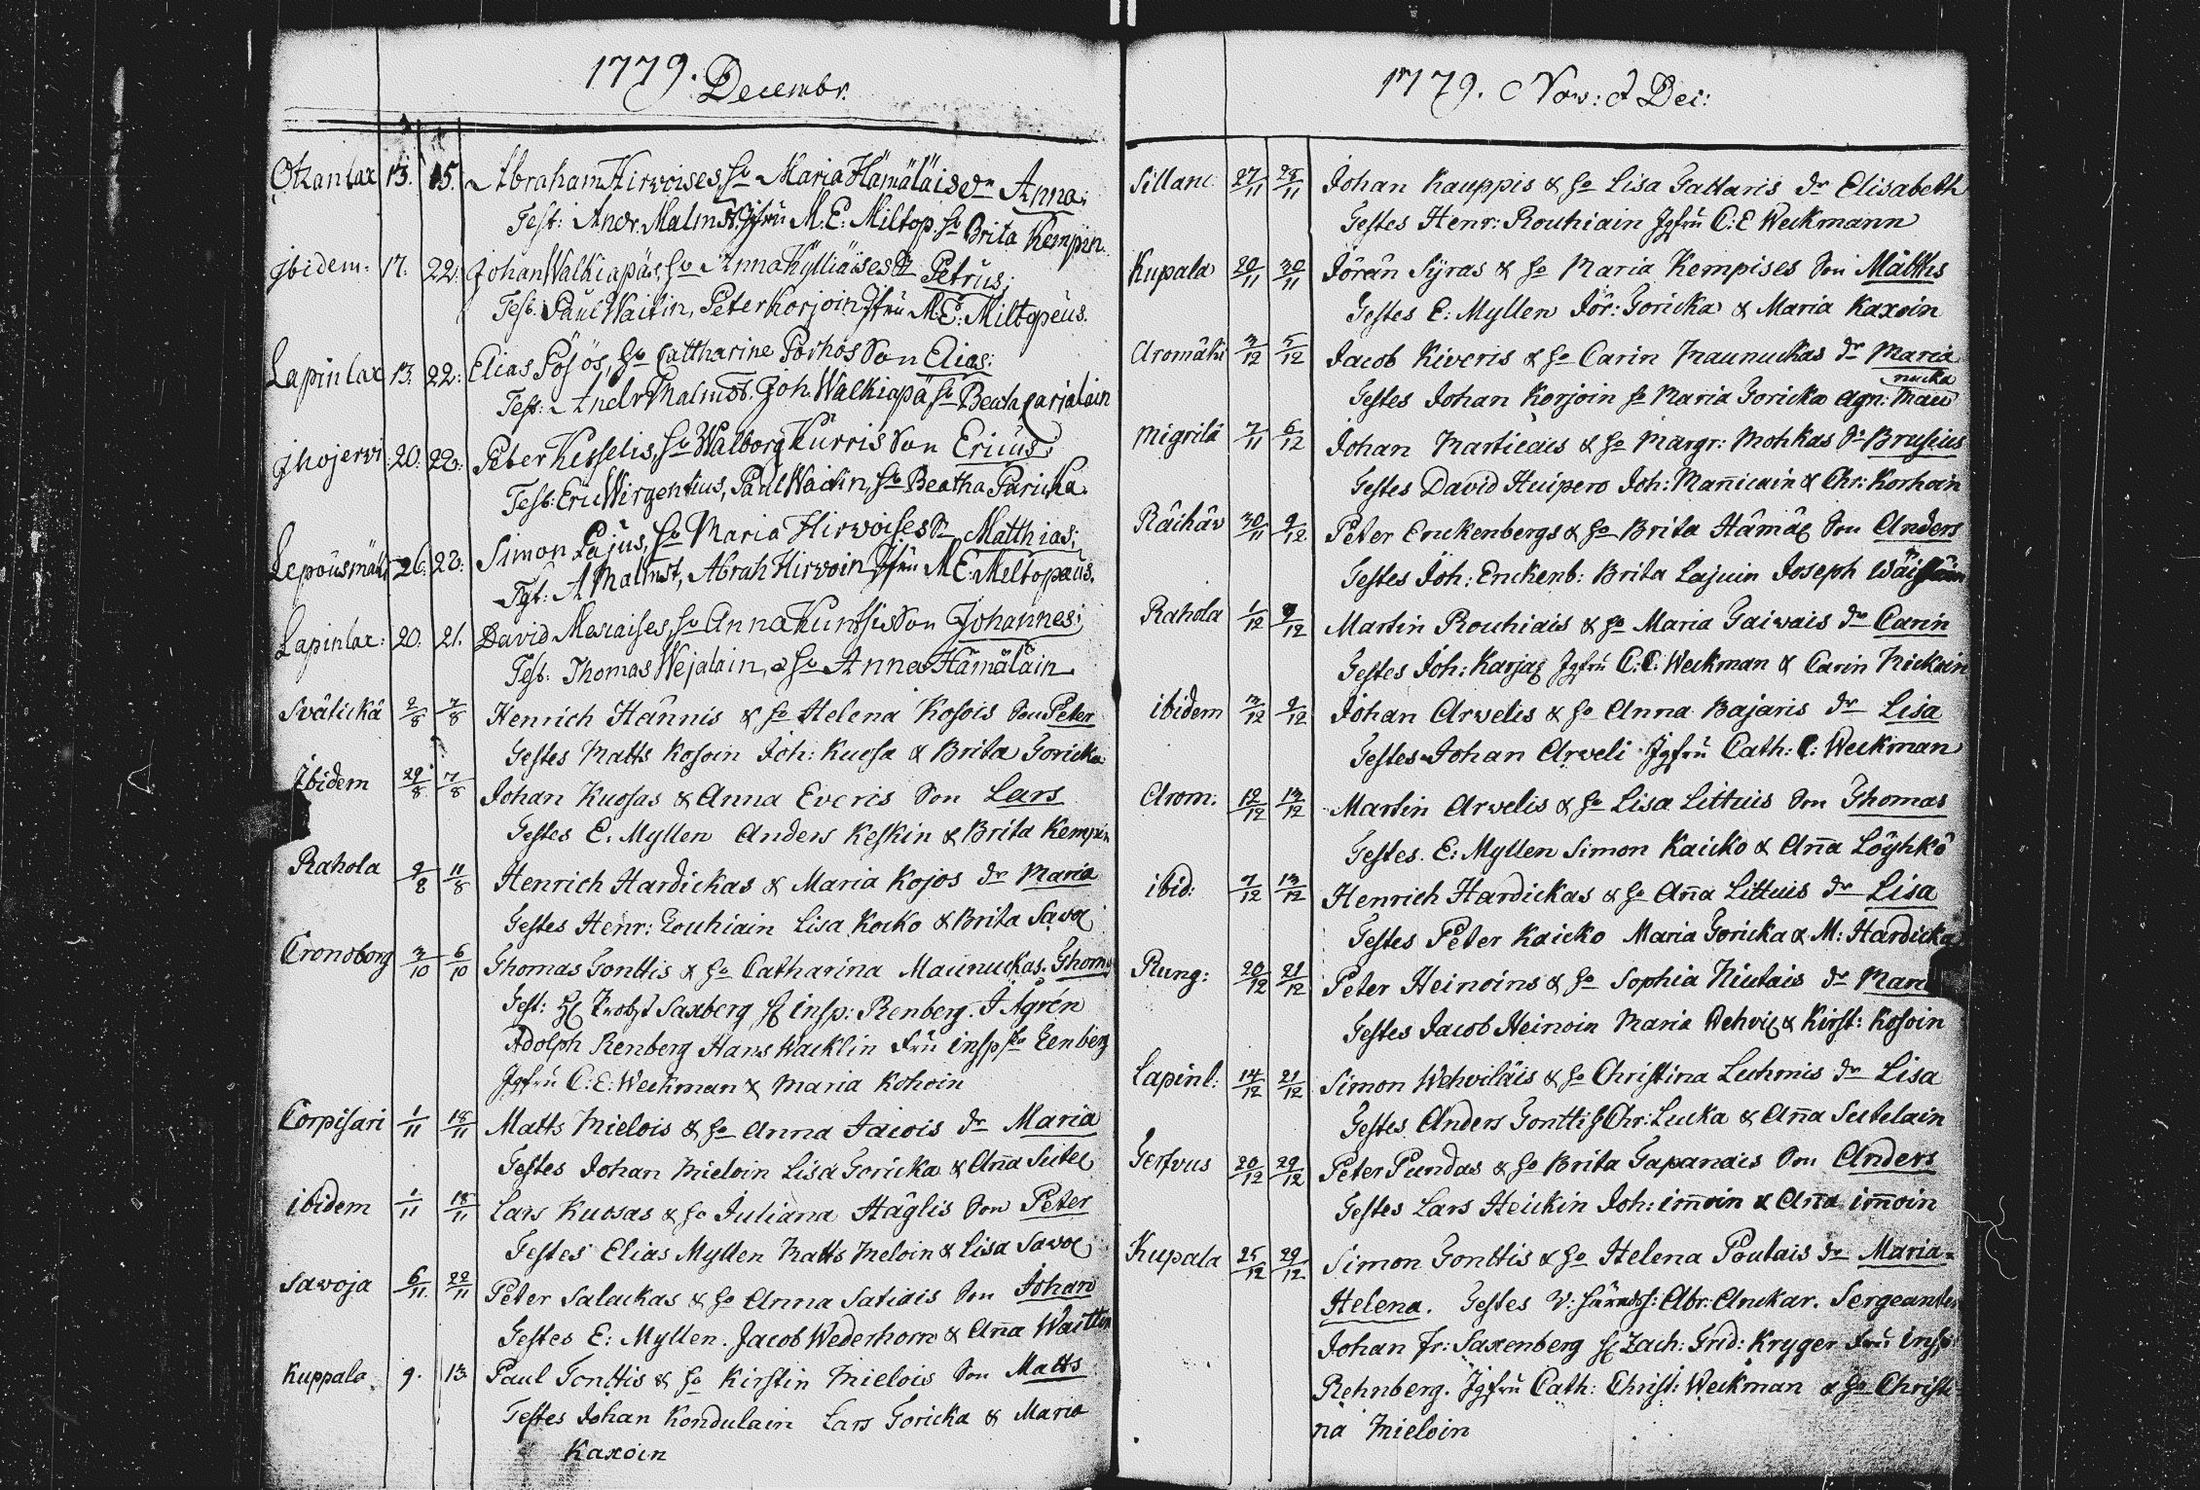 1779. Decembr.
Otzanlax 13. 15. Abraham Hirvoises, ho Maria Hämäläis dr Anna;
Test: Andr. Malmst. Jfru M. E: Miltop. ho Brita Kempin.
Ibidem: 17. 22. Johan Walkiapäs, ho Anna Kylliäises Petrus;
Test. Paul Waitin, Peter Korjoin Jfru M: E: Miltopeus.
Lapinlax 13. 22. Elias Pösös, ho Cattharine Porhos Son Elias;
Test: Andr Malmst. Joh. Walkiapä ho Beata Carialain
Ihojervi 20. 22. Peter Kesselis, ho Walborg Kurris Son Ericus;
Test. Eric Wirgentius, Paul Waitin, ho Beatha Puricka.
26. 22. Simon Lajus, ho Maria Hirvoises Sn Matthias;
Tst: A Malmst, Abrah Hirvoin Jfru M E: Miltopaus.
Lapinlax: 20. 21. David Meskaises, ho Anna Son Johannes;
Test. Thomas Wejalain, a ho Anna Hämäläin
Svätickä 2/8 7/8 Henrich Hännis & ho Helena Kosois Son Peter
Testes Matts Kosoin Joh: Kuosa & Brita Toricka
Ibidem 29/8 7/8 Johan Kuosas & Anna Everis Son Lars
Testes E: Myllen Anders Keskin & Brita Kempin
Rahola 9/8 11/8 Henrich Hardickas & Maria Kojos dr Maria
Testes Henr: Rouhiain Lisa Kocko & Brita Savol
Cronoborg 3/10 6/10 Thomas Tonttis & ho Catharina Maunuckas. Thom
Test: Hl Probst Saxberg H insp: Renberg. J Ågrén
Adolph Renberg Hans Wacklin Fru insp
Jgfru C: E: Weckman & Maria Kohoin
Corpisari 1/11 18/11 Matts Mielois & ho Anna Jäiois dr Maria
Testes Johan Mieloin Lisa Toricka & Aña Sutel
ibidem 1/11 18/11 Lars Kuosas & ho Juliana Häglis Son Peter
Testes Elias Myllen Matts Meloin & Lisa Savol
Savoja 6/11 22/11 Peter Salackas & ho Anna Satiais Son Johan
Testes E: Myllen. Jacob Wederhorn & Aña Waittin
Kuppala 9. 13. Paul Tonttis & ho Kirstin Mielois Son Matts
Testes Johan Kondulain Lars Toricka & Maria
Kaxoin
1779. Nov: & Dec:
Sillanc 27/11 28/11 Johan Kauppis & ho Lisa Tattaris dr Elisabeth
Testes Henr: Rouhiain Jgfru C: E Weckmann
Kupala 20/11 30/11 Jörän Syras & ho Maria Kempises Son Matths
Testes E: Myllen Jör: Toricka & Maria Kaxoin
Aromäki 3/12 5/12 Jacob Kiveris & ho Carin Maunuckas dr Maria
Testes Johan Korjoin ho Maria Toricka Agn: Mau
nucka
Migrilä 7/11 6/12 Johan Martieais & ho Margr: Mohkas Sn Brusius
Testes David Huipero Joh: Mañicain & Chr: Korhoin
Räihäv 30/11 9/12 Peter Enckenbergs & ho Brita Hämäl Son Anders
Testes Joh: Enckenb: Brita Lajuin Joseph
Rahola 1/12 9/12 Martin Rouhiais & ho Maria Taivais dr Carin
Testes Joh: Karjal Jgfru C: C: Weckman & Carin Nickain
ibidem 3/12 9/12 Johan Arvelis & ho Anna Bajaris dr Lisa
Testes Johan Arveli Jgfru Cath: C: Weckman
Arom: 12/12 13/12 Martin Arvelis & ho Lisa Littuis Son Thomas
Testes. E: Myllen Simon Kaicko & Aña Löyhkö
ibid: 7/12 13/12 Henrich Hardickas & ho Aña Littuis dr Lisa
Testes Peter Kaicko Maria Toricka & M: Hardicka
Pung: 20/12 21/12 Peter Heinoins & ho Sophia Niutais dr Mari
Testes Jacob Heinoin Maria Wehvil & Kirst: Kosoin
Lapinl: 14/12 21/12 Simon Wehviläis & ho Christina Luhmis dr Lisa
Testes Anders Tontti Chr: Lucka & Aña Sutelain
Tervus 20/12 29/12 Peter Pundas & ho Brita Tapanais Son Anders
Testes Lars Heickin Joh: im̄oin & Aña im̄oin
Kupala 25/12 29/12 Simon Tonttis & ho Helena Poutais dr Maria-
Helena. Testes Abr: Anckar. Sergeanten
Johan Fr: Saxenberg H Zach: Frid: Kryger Fru Insp
Rehnberg. Jgfru Cath: Christ: Weckman & ho Christi
na Mieloin